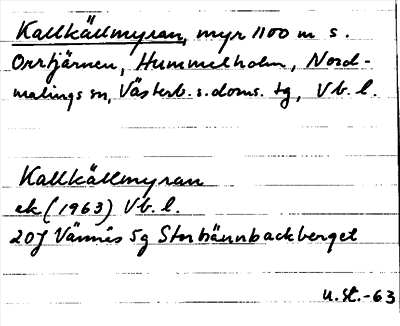 Kallkällmyran, myr 1100 m s.
Orrtjärnen, Hummelholm, Nord-
malings sn, Västerb. s. doms. tg, Vb. l.
Kallkällmyran
ek (1963) Vb. l.
20J Vännäs 5g Storbännbackberget
U. St. -63